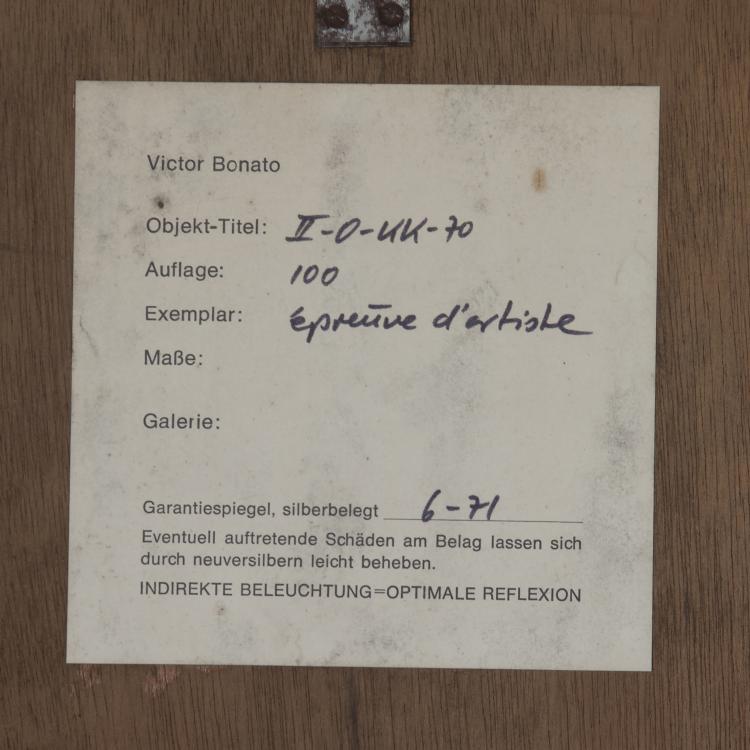 Victor Bonato
Objekt-Titel: II-O-KK-70
Auflage: 100
Exemplar: épreuve d'artiste
Maße:
Galerie:
Garantiespiegel, silberbelegt 6-71
Eventuell auftretende Schäden am Belag lassen sich
durch neuversilbern leicht beheben.
INDIREKTE BELEUCHTUNG=OPTIMALE REFLEXION